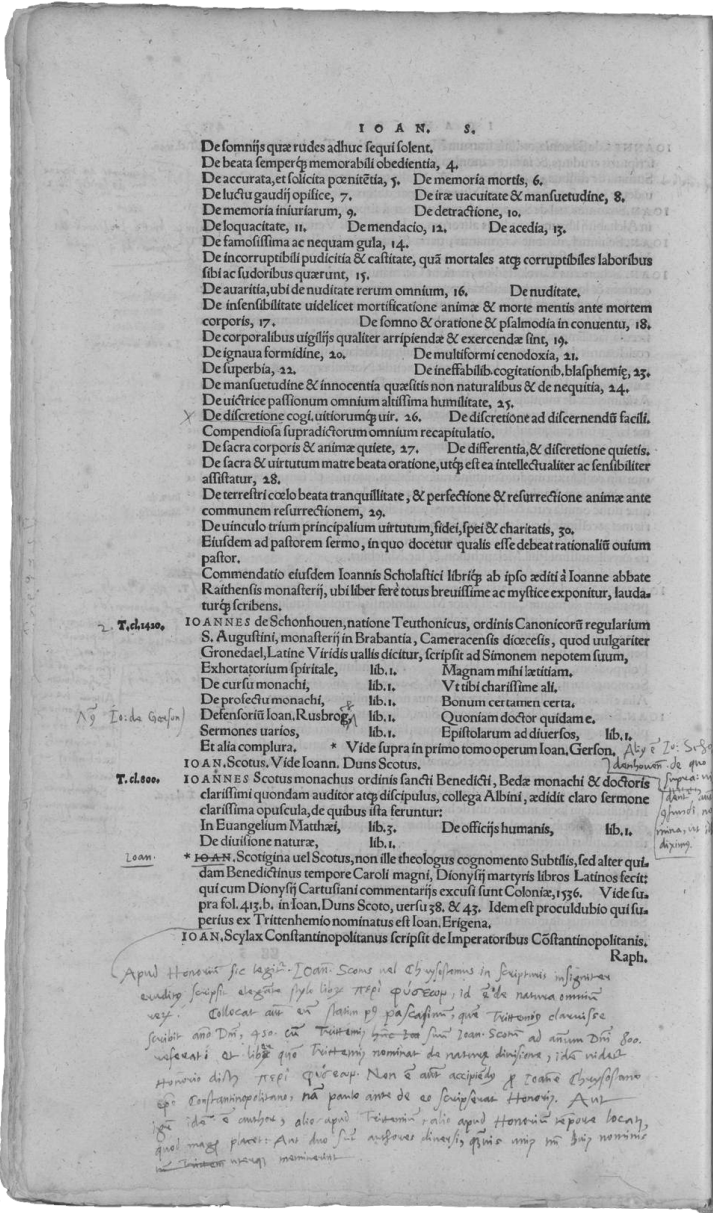 IOAN. S.
De somnijs quæ rudes adhuc sequi solent.
De beata semperq́; memorabili obedientia, 4.
De accurata, et solicita pœnitẽtia, 5. De memoria mortis, 6.
De luctu gaudij opifice, 7. De iræ uacuitate & mansuetudine, 8.
De memoria iniuriarum, 9. De detractione, 10.
De loquacitate, 11. De mendacio, 12. De acedia, 13.
De famosissima ac nequam gula, 14.
De incorruptibili pudicitia & castitate, quã mortales atq; corruptibiles laboribus
sibi ac sudoribus quærunt, 15.
De auaritia, ubi de nuditate rerum omnium, 16. De nuditate.
De insensibilitate uidelicet mortificatione animæ & morte mentis ante mortem
corporis, 17. De somno & oratione & psalmodia in conuentu, 18.
De corporalibus uigilijs qualiter arripiendæ & exercendæ sint, 19.
De ignaua formidine, 20. De multiformi cenodoxia, 21.
De superbia, 22. De ineffabilib. cogitationib. blasphemię, 23.
De mansuetudine & innocentia quæsitis non naturalibus & de nequitia, 24.
De uictrice passionum omnium altissima humilitate, 25.
De discretione cogi. uitiorumq́; uir. 26. De discretione ad discernendũ facili.
Compendiosa supradictorum omnium recapitulatio.
De sacra corporis & animæ quiete, 27. De differentia, & discretione quietis.
De sacra & uirtutum matre beata oratione, utq́; est ea intellectualiter ac sensibiliter
assistatur, 28.
De terrestri cœlo beata tranquillitate, & perfectione & resurrectione animæ ante
communem resurrectionem, 29.
De uinculo trium principalium uirtutum, fidei, spei & charitatis, 30.
Eiusdem ad pastorem sermo, in quo docetur qualis esse debeat rationaliũ ouium
pastor.
Commendatio eiusdem Ioannis Scholastici libriq́; ab ipso æditi à Ioanne abbate
Raithensis monasterij, ubi liber ferè totus breuissime ac mystice exponitur, lauda-
turq́; scribens.
2. T.cl.1420. IOANNES de Schonhouen, natione Teuthonicus, ordinis Canonicorũ regularium
S. Augustini, monasterij in Brabantia, Cameracensis diœcesis, quod uulgariter
Gronedael, Latine Viridis uallis dicitur, scripsit ad Simonem nepotem suum,
Exhortatorium spiritale, lib.1. Magnam mihi lætitiam.
De cursu monachi, lib.1. Vt tibi charissime ali.
De profectu monachi, lib.1. Bonum certamen certa.
Io: de Gerson) Defensoriũ Ioan. Rusbrog, lib.1. Quoniam doctor quidam e.
Sermones uarios, lib.1. Epistolarum ad diuersos, lib.1.
Et alia complura. * Vide supra in primo tomo operum Ioan. Gerson.
IOAN. Scotus. Vide Ioann. Duns Scotus.
T.cl.800. IOANNES Scotus monachus ordinis sancti Benedicti, Bedæ monachi & doctoris
clarissimi quondam auditor atq; discipulus, collega Albini, ædidit claro sermone
clarissima opuscula, de quibus ista feruntur:
In Euangelium Matthæi, lib.3. De officijs humanis, lib.1.
De diuisione naturæ, lib.1.
Ioan. * IOAN. Scotigina uel Scotus, non ille theologus cognomento Subtilis, sed alter qui-
dam Benedictinus tempore Caroli magni, Dionysij martyris libros Latinos fecit:
qui cum Dionysij Cartusiani commentarijs excusi sunt Coloniæ, 1536. Vide su-
pra fol. 413. b. in Ioan. Duns Scoto, uersu 38. & 43. Idem est proculdubio qui su-
perius ex Trittenhemio nominatus est Ioan. Erigena.
IOAN. Scylax Constantinopolitanus scripsit de Imperatoribus Cõstantinopolitanis.
Raph.
Apud Honoriũ sic legit. Ioan. Scotus uel Chrysostomus in scripturis insigniter
eruditꝯ scripsit eleganti stylo librũ περὶ φύσεωμ, id ẽ de natura omniũ
Collocat aũt eũ statim Pascasium, quẽ Trittemiꝯ claruisse
scribit anno Dñi, 450. ad annum Dñi 800.
Trittemiꝯ nominat de naturæ diuisione,
Honorio περὶ φύσεωμ. Non ẽ aũt accipiendꝯ ꝓ Ioanne Chrysostomo
Constantinopolitano, nã paulo ante de eo scripserat Honoriꝯ. Aut
idẽ ẽ author, alio apud Trittemiũ, alio apud Honoriũ tempore locatꝯ,
placet. Aut duo sũt authores diuersi,
meminerunt